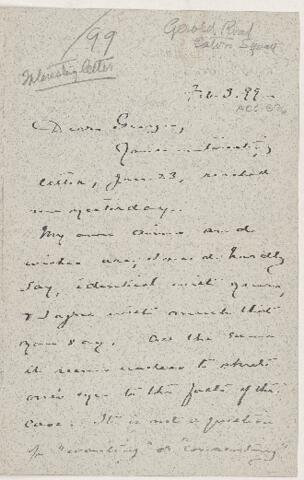 /99
Interesting letter
Gerald Road
Eaton Square
Feb. 3. 99
Dear George,
Your interesting
letter, Jan. 23, reached
me yesterday.
My own aims and
wishes are, I need hardly
say, identical with yours,
& I agree with much that
you say. All the same
it seems useless to shut
one's eyes to the facts of the
case. It is not a question
of "wanting" or "consenting"